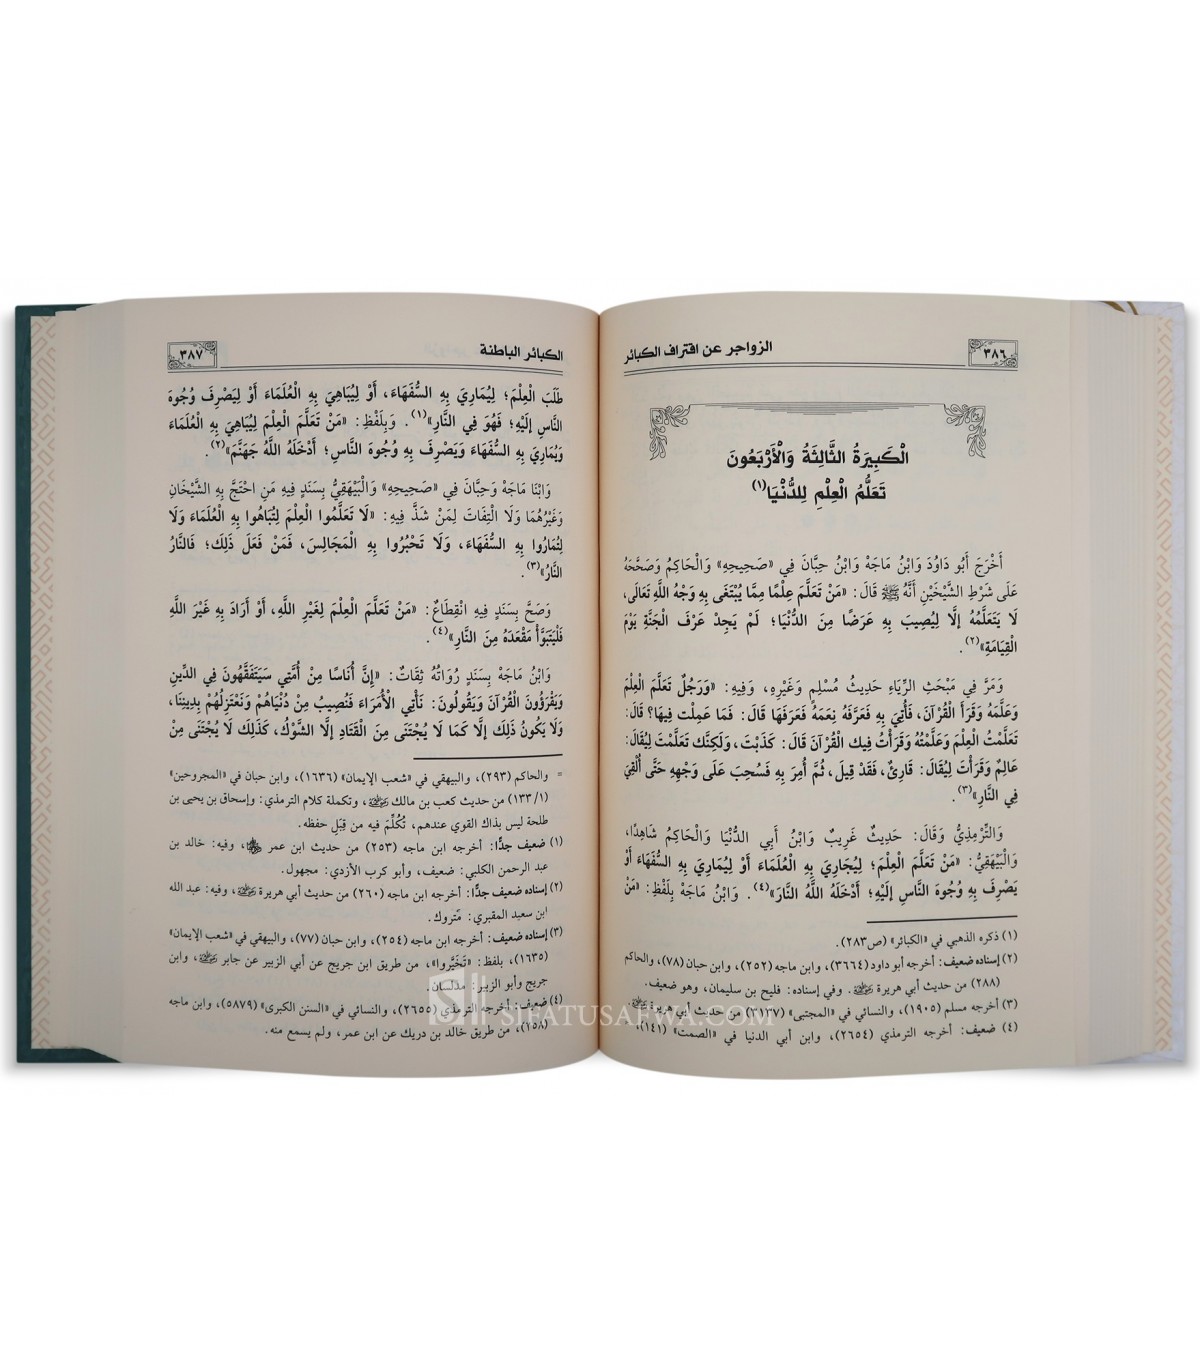 ٣٨٦
الزواجر عن اقتراف الكبائر
الْكَبِيرَةُ الثَّالِثَةُ وَالْأَرْبَعُونَ
تَعَلُّمُ الْعِلْمِ لِلدُّنْيَا(١)
أَخْرَجَ أَبُو دَاوُدَ وَابْنُ مَاجَهْ وَابْنُ حِبَّانَ فِي «صَحِيحِهِ» وَالْحَاكِمُ وَصَحَّحَهُ
عَلَى شَرْطِ الشَّيْخَيْنِ أَنَّهُ ﷺ قَالَ: «مَنْ تَعَلَّمَ عِلْمًا مِمَّا يُبْتَغَى بِهِ وَجْهُ اللَّهِ تَعَالَى،
لَا يَتَعَلَّمُهُ إِلَّا لِيُصِيبَ بِهِ عَرَضًا مِنَ الدُّنْيَا؛ لَمْ يَجِدْ عَرْفَ الْجَنَّةِ يَوْمَ
الْقِيَامَةِ»(٢).
وَمَرَّ فِي مَبْحَثِ الرِّيَاءِ حَدِيثُ مُسْلِمٍ وَغَيْرِهِ، وَفِيهِ: «وَرَجُلٌ تَعَلَّمَ الْعِلْمَ
وَعَلَّمَهُ وَقَرَأَ الْقُرْآنَ، فَأُتِيَ بِهِ فَعَرَّفَهُ نِعَمَهُ فَعَرَفَهَا قَالَ: فَمَا عَمِلْتَ فِيهَا؟ قَالَ:
تَعَلَّمْتُ الْعِلْمَ وَعَلَّمْتُهُ وَقَرَأْتُ فِيكَ الْقُرْآنَ قَالَ: كَذَبْتَ، وَلَكِنَّكَ تَعَلَّمْتَ لِيُقَالَ:
عَالِمٌ وَقَرَأْتَ لِيُقَالَ: قَارِئٌ، فَقَدْ قِيلَ، ثُمَّ أُمِرَ بِهِ فَسُحِبَ عَلَى وَجْهِهِ حَتَّى أُلْقِيَ
فِي النَّارِ»(٣).
وَالتِّرْمِذِيُّ وَقَالَ: حَدِيثٌ غَرِيبٌ وَابْنُ أَبِي الدُّنْيَا وَالْحَاكِمُ شَاهِدًا،
وَالْبَيْهَقِيُّ: «مَنْ تَعَلَّمَ الْعِلْمَ؛ لِيُجَارِيَ بِهِ الْعُلَمَاءَ أَوْ لِيُمَارِيَ بِهِ السُّفَهَاءَ أَوْ
يَصْرِفَ بِهِ وُجُوهَ النَّاسِ إِلَيْهِ؛ أَدْخَلَهُ اللَّهُ النَّارَ»(٤). وَابْنُ مَاجَهْ بِلَفْظِ: «مَنْ
(١) ذكره الذهبي في «الكبائر» (ص٢٨٣).
(٢) إسناده ضعيف: أخرجه أبو داود (٣٦٦٤)، وابن ماجه (٢٥٢)، وابن حبان (٧٨)، والحاكم
(٢٨٨) من حديث أبي هريرة رضي الله عنه. وفي إسناده: فليح بن سليمان، وهو ضعيف.
(٣) أخرجه مسلم (١٩٠٥)، والنسائي في «المجتبى» (٣١٣٧) من حديث أبي هريرة رضي الله عنه.
(٤) ضعيف: أخرجه الترمذي (٢٦٥٤)، وابن أبي الدنيا في «الصمت» (١٤١)،
الكبائر الباطنة
٣٨٧
طَلَبَ الْعِلْمَ؛ لِيُمَارِيَ بِهِ السُّفَهَاءَ، أَوْ لِيُبَاهِيَ بِهِ الْعُلَمَاءَ أَوْ لِيَصْرِفَ وُجُوهَ
النَّاسِ إِلَيْهِ؛ فَهُوَ فِي النَّارِ»(١). وَبِلَفْظِ: «مَنْ تَعَلَّمَ الْعِلْمَ لِيُبَاهِيَ بِهِ الْعُلَمَاءَ
وَيُمَارِيَ بِهِ السُّفَهَاءَ وَيَصْرِفَ بِهِ وُجُوهَ النَّاسِ؛ أَدْخَلَهُ اللَّهُ جَهَنَّمَ»(٢).
وَابْنَا مَاجَهْ وَحِبَّانَ فِي «صَحِيحِهِ» وَالْبَيْهَقِيُّ بِسَنَدٍ فِيهِ مَنِ احْتَجَّ بِهِ الشَّيْخَانِ
وَغَيْرُهُمَا وَلَا الْتِفَاتَ لِمَنْ شَذَّ فِيهِ: «لَا تَعَلَّمُوا الْعِلْمَ لِتُبَاهُوا بِهِ الْعُلَمَاءَ وَلَا
لِتُمَارُوا بِهِ السُّفَهَاءَ، وَلَا تَحْبُرُوا بِهِ الْمَجَالِسَ، فَمَنْ فَعَلَ ذَلِكَ؛ فَالنَّارُ
النَّارُ»(٣).
وَصَحَّ بِسَنَدٍ فِيهِ انْقِطَاعٌ: «مَنْ تَعَلَّمَ الْعِلْمَ لِغَيْرِ اللَّهِ، أَوْ أَرَادَ بِهِ غَيْرَ اللَّهِ
فَلْيَتَبَوَّأْ مَقْعَدَهُ مِنَ النَّارِ»(٤).
وَابْنُ مَاجَهْ بِسَنَدٍ رُوَاتُهُ ثِقَاتٌ: «إِنَّ أُنَاسًا مِنْ أُمَّتِي سَيَتَفَقَّهُونَ فِي الدِّينِ
وَيَقْرَؤُونَ الْقُرْآنَ وَيَقُولُونَ: نَأْتِي الْأُمَرَاءَ فَنُصِيبُ مِنْ دُنْيَاهُمْ وَنَعْتَزِلُهُمْ بِدِينِنَا،
وَلَا يَكُونُ ذَلِكَ إِلَّا كَمَا لَا يُجْتَنَى مِنَ الْقَتَادِ إِلَّا الشَّوْكُ، كَذَلِكَ لَا يُجْتَنَى مِنْ
= والحاكم (٢٩٣)، والبيهقي في «شعب الإيمان» (١٦٣٦)، وابن حبان في «المجروحين»
(١/ ١٣٣) من حديث كعب بن مالك رضي الله عنه، وتكملة كلام الترمذي: وإسحاق بن يحيى بن
طلحة ليس بذاك القوي عندهم، تُكُلِّمَ فيه من قِبَلِ حفظه.
(١) ضعيف جدًّا: أخرجه ابن ماجه (٢٥٣) من حديث ابن عمر رضي الله عنهما، وفيه: خالد بن
عبد الرحمن الكلبي: ضعيف، وأبو كرب الأزدي: مجهول.
(٢) إسناده ضعيف جدًّا: أخرجه ابن ماجه (٢٦٠) من حديث أبي هريرة رضي الله عنه، وفيه: عبد الله
ابن سعيد المقبري: متروك.
(٣) إسناده ضعيف: أخرجه ابن ماجه (٢٥٤)، وابن حبان (٧٧)، والبيهقي في «شعب الإيمان»
(١٦٣٥)، بلفظ: «تَخَيَّروا»، من طريق ابن جريج عن أبي الزبير عن جابر رضي الله عنه، وابن
جريج وأبو الزبير: مدلسان.
(٤) ضعيف: أخرجه الترمذي (٢٦٥٥)، والنسائي في «السنن الكبرى» (٥٨٧٩)، وابن ماجه
(٢٥٨)، من طريق خالد بن دريك عن ابن عمر، ولم يسمع منه.
SIFATUSAFWA.COM